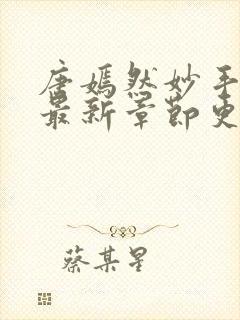 唐嫣然妙手
最新章节更
蔡某星